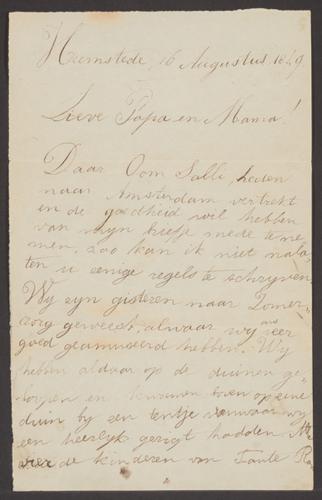 Heemstede, 16 Augustus 1849
Lieve Papa en Mama!
Daar Oom Salli, heden
naar Amsterdam vertrekt
en de goedheid wil hebben
van myn briefje mede te ne
men, zoo kan ik niet nala-
ten u eenige regels te schryven
Wy zyn gisteren naar Zomer-
zorg geweest, alwaar wy ons zeer
goed geamuseerd hebben. Wy
hebben aldaar op de duinen ge-
loopen en kwamen boven op eene
duin by een tentje vanwaar wy
een heerlyk gezigt hadden
de kinderen van Tante